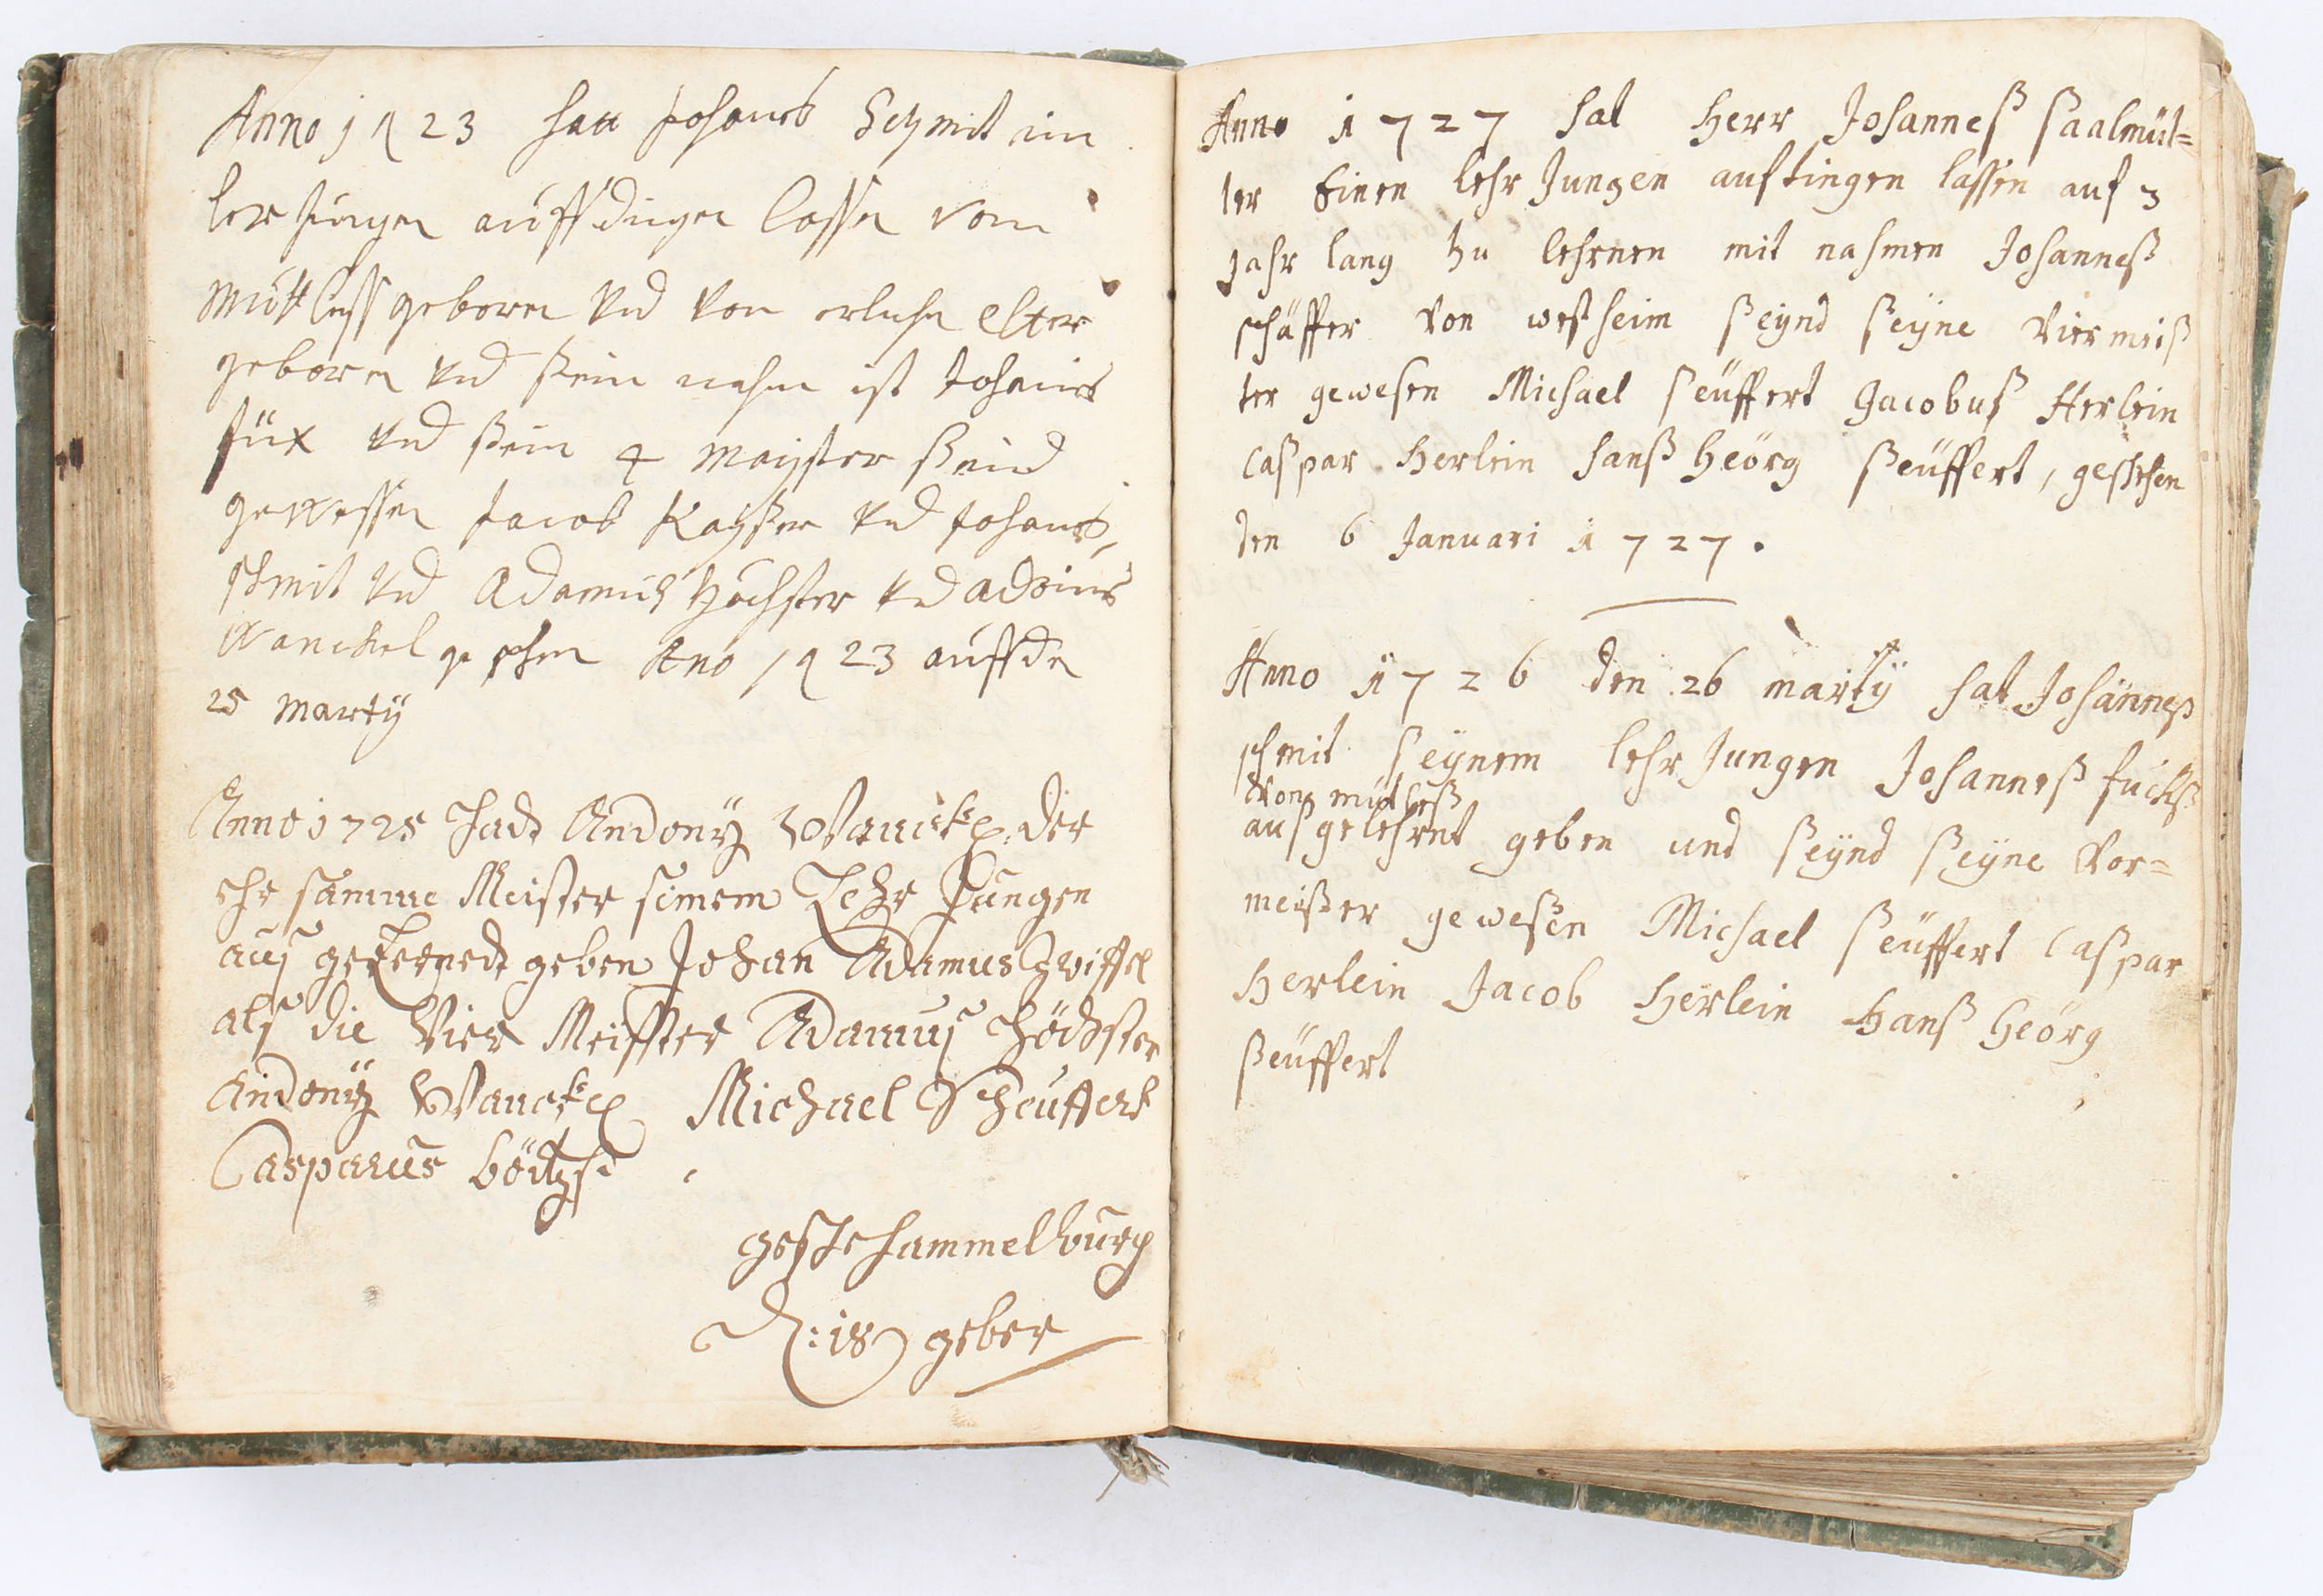 Anno 1723 hatt Johanes Schmit ein
lerJungen auffdingen lassen von
Mittless geboren Vnd Von erlichen Elter
geboren Vnd sein nahm ist Johanes
fux Vnd sein 4 Maister seind
gewessen Jacob Kaysser Vnd Johanes
schmit Vnd Adamus Höchster Vnd
Wanckel geschen Ano 1723 auff den
25 Marty
Anno 1725 Hadt Andony Wanckel der
Ehrsamme Meister seinem Lehr Jungen
aus gelernedt geben Johan Adamus Zwiffel
als die Vier Meisster Adamus Höchster
Andony Wanckel Michael Scheuffert
Casparus
Hammelburg
D: 18
Anno 1727 hat Herr Johanneß Saalmüt=
ter Einen lehr Jungen auftingen lassen auf 3
Jahr lang zu lehrnen mit nahmen Johanneß
schäffer Von westheim seynd seyne Viermeis
ter gewesen Michael seüffert Jacobus Herlein
Caspar Herlein Hanß Geörg seüffert, geschehen
den 6 Januari 1727.
Anno 1726 den 26 marty hat Johanneß
schmit seynem lehr Jungen Johanneß fuchß
Von mütleß
ausgelehrnt geben und seynd seyne Vor=
meister gewesen Michael seüffert Caspar
Herlein Jacob Herlein Hanß Geörg
seüffert